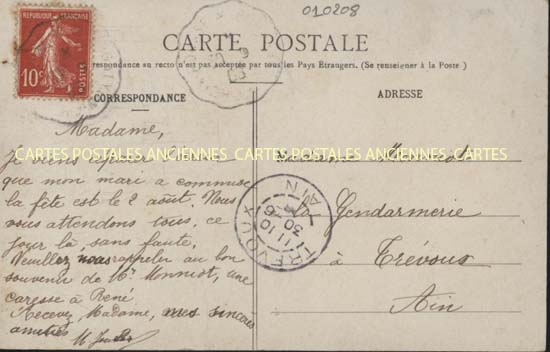 010208
REPUBLIQUE FRANÇAISE
10c
POSTES
CARTE POSTALE
correspondance au recto n'est pas acceptée par tous les Pays Étrangers. (Se renseigner à la Poste)
CORRESPONDANCE
ADRESSE
Madame,
CARTES POSTALES ANCIENNES CARTES POSTALES ANCIENNES CARTES
Je viens
que mon mari a commise
la fête est le 2 août. Nous
vous attendons tous, ce
jour là, sans faute.
Veuillez nous rappeler au bon
souvenir de Mr Monnist, une
caresse à René
Recevez, Madame, mes sincères
amitiés
Madame
Gendarmerie
à Trévoux
Ain
TREVOUX
AIN
11 10
30